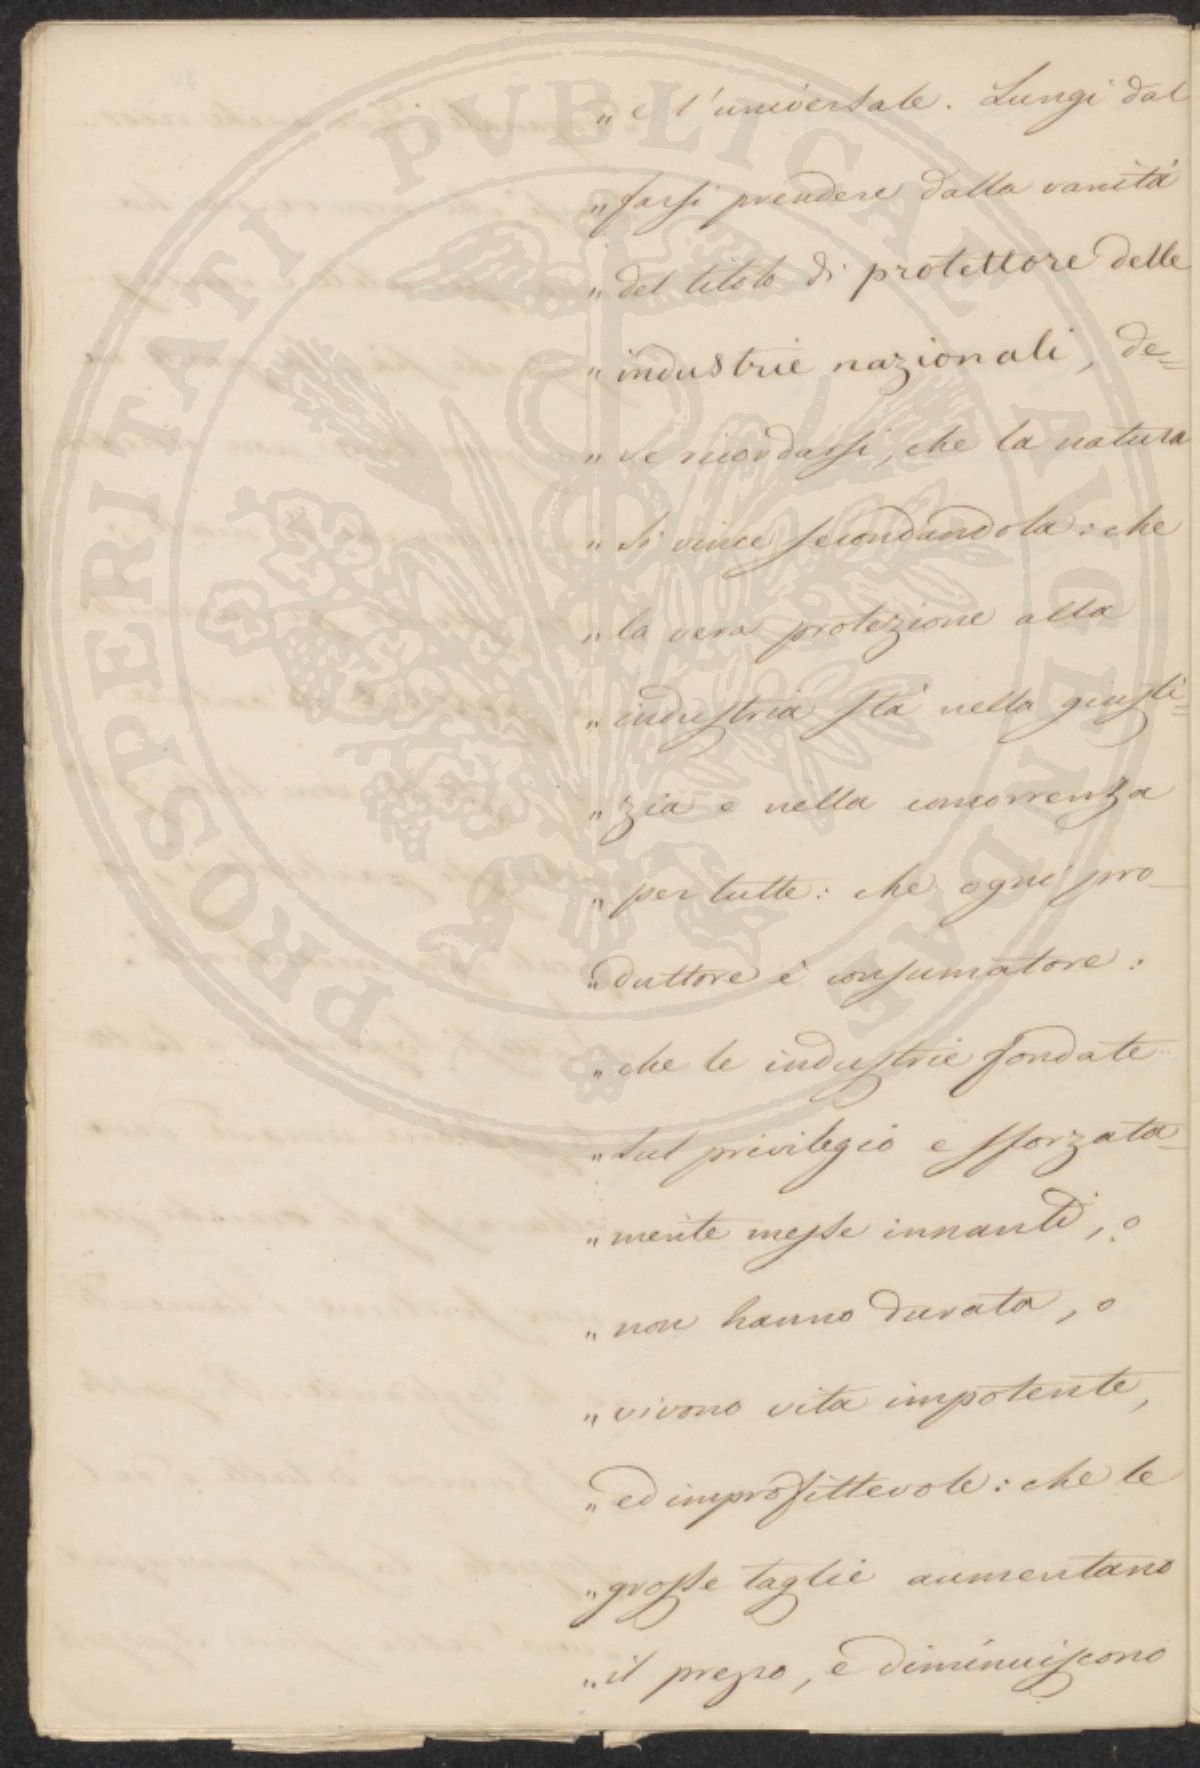 „ e l'universale. Lungi dal
„ farsi prendere dalla vanità
„ del titolo di protettore delle
„ industrie nazionali, de=
„ ve ricordarsi, che la natura
„ si vince secondandola: che
„ la vera protezione alla
„ industria stà nella giusti=
„ zia e nella concorrenza
„ per tutte: che ogni pro_
„ duttore è consumatore:
„ che le industrie fondate
„ sul privilegio e sforzata_
„ mente messe innanti, o
„ non hanno durata, o
„ vivono vita impotente,
„ ed improfittevole: che le
„ grosse taglie aumentano
„ il prezzo, e diminuiscono
PROSPERITATI PVBLICAE AVGENDAE